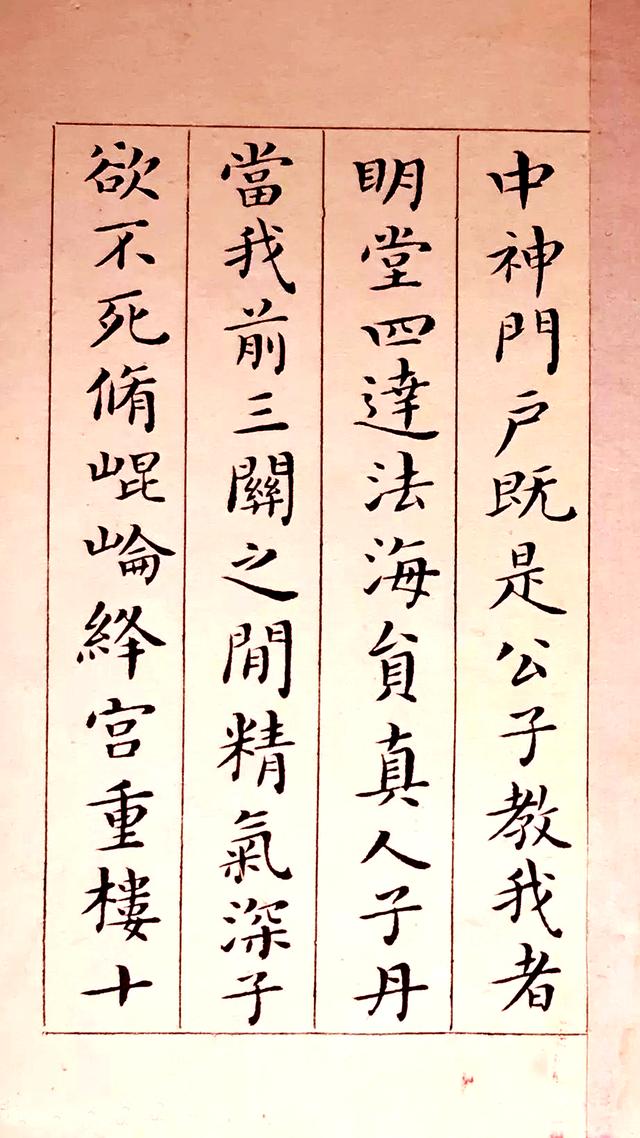 中神門户既是公子教我者
明堂四達法海貟真人子丹
當我前三關之閒精氣深子
欲不死脩崐崘絳宮重樓十